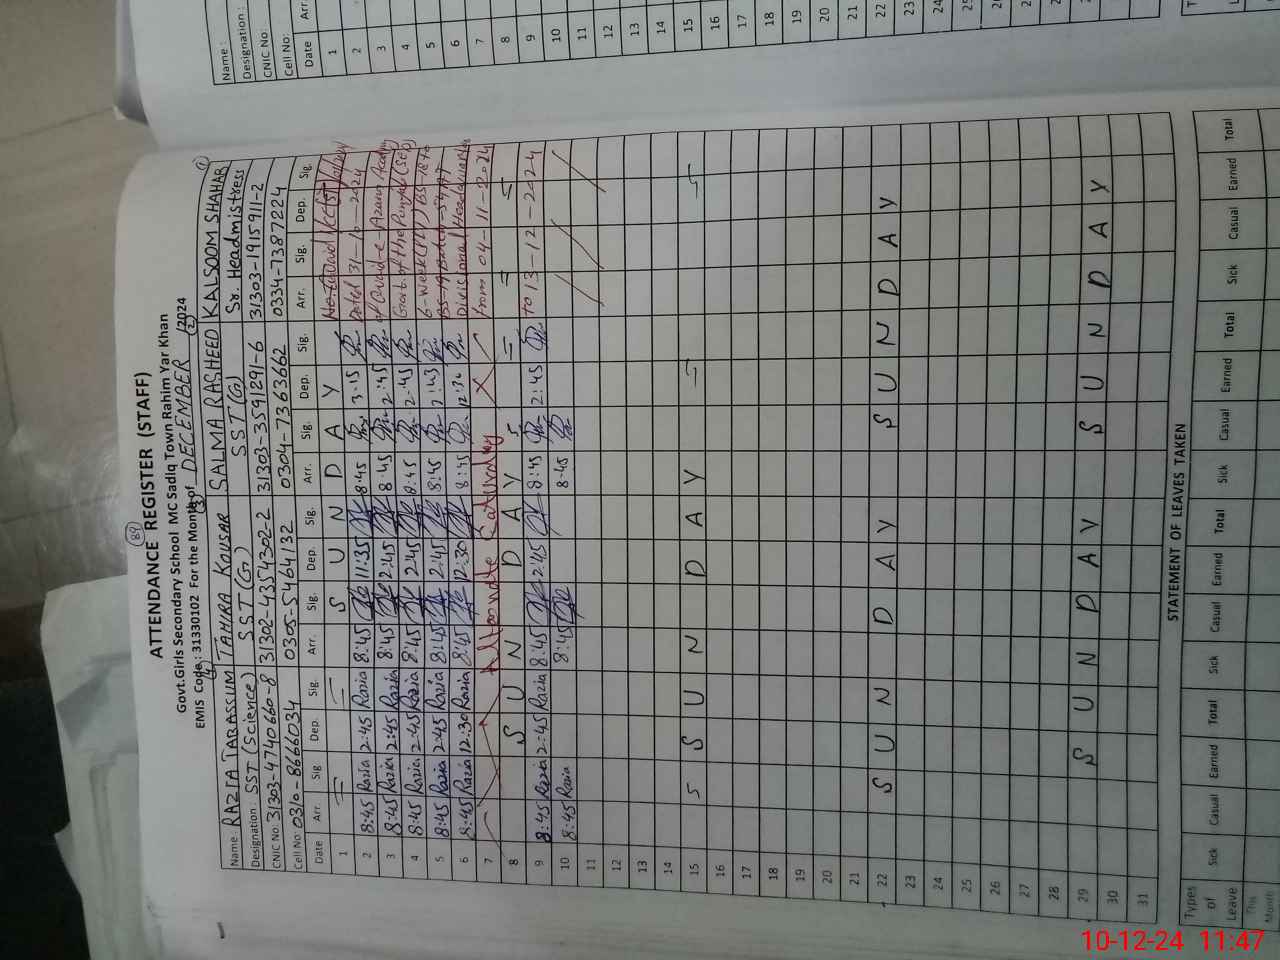 (89)
ATTENDANCE REGISTER (STAFF)
Govt.Girls Secondary School MC Sadiq Town Rahim Yar Khan
EMIS Code : 31330102 For the Month of DECEMBER /2024
(4) (3) (2) (1)
Name : RAZIA TABASSUM TAHIRA KOUSAR SALMA RASHEED KALSOOM SHAHAR
Designation : SST (Science) SST (G) SST (G) Sr. Headmistress
CNIC No: 31303-4740660-8 31302-4354302-2 31303-3591291-6 31303-1915911-2
Cell No: 0310-8666034 0305-5464132 0304-7363662 0334-7387224
Date Arr. Sig Dep. Sig. Arr. Sig. Dep. Sig. Arr. Sig. Dep. Sig. Arr. Sig. Dep. Sig.
1 S U N D A Y
2 8:45 Razia 2:45 Razia 8:45 11:35 8:45 3:15 Dated 31-10-2024
3 8:45 Razia 2:45 Razia 8:45 2:45 8:45 2:45
4 8:45 Razia 2:45 Razia 8:45 2:45 8:45 2:45 Govt. of the Punjab
5 8:45 Razia 2:45 Razia 8:45 2:45 8:45 2:45 6-Week
6 8:45 Razia 12:30 Razia 8:45 12:30 8:45 12:30 Divisional Headquarter
7 Alternate Saturday from 04-11-2024
8 S U N D A Y
9 8:45 Razia 2:45 Razia 8:45 2:45 8:45 2:45 to 13-12-2024
10 8:45 Razia 8:45 8:45
11
12
13
14
15 S U N D A Y
16
17
18
19
20
21
22 S U N D A Y S U N D A Y
23
24
25
26
27
28
29 S U N D A Y S U N D A Y
30
31
STATEMENT OF LEAVES TAKEN
Types of Leave Sick Casual Earned Total Sick Casual Earned Total Sick Casual Earned Total Sick Casual Earned Total
This Month
Name :
Designation :
CNIC No:
Cell No:
Date Arr.
1
2
3
4
5
6
7
8
9
10
11
12
13
14
15
16
17
18
19
20
21
22
23
24
10-12-24 11:47